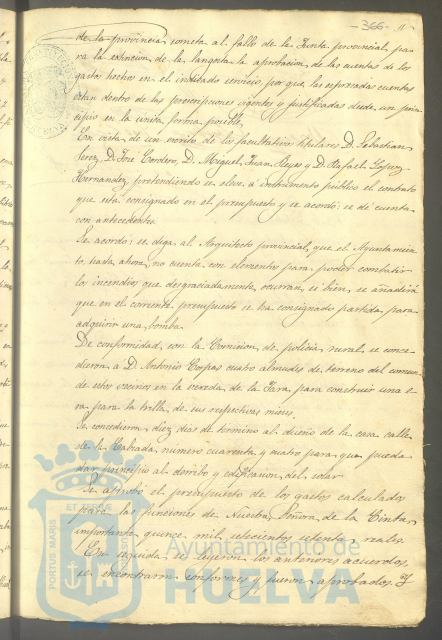 366
de la provincia someta al fallo de la Junta provincial, pa
ra la estincion de la langosta la aprobacion de las cuentas de los
gastos hechos en el indicado servicio, por que las espresadas cuentas
estan dentro de las prescripciones vigentes y justificadas desde un prin
cipio en la unica forma posible.
En vista de un escrito de los facultativos titulares D. Sebastian
Perez, D. José Cordero, D. Miguel Juan Reyes y D. Rafael Lopez
Hernandez, pretendiendo se eleve á instrumento público el contrato
que está consignado en el presupuesto y se acordó: se dé cuenta
con antecedentes.
Se acordó: se diga al Arquitecto provincial, que el Ayuntamien
to, hasta ahora, no cuenta con elementos para poder combatir
los incendios que desgraciadamente ocurran, si bien, se añadirá
que en el corriente presupuesto se ha consignado partida para
adquirir una bomba.
De conformidad, con la Comision de policia rural, se conce
dieron á D. Antonio cuatro almudes de terreno del comun
de estos vecinos en la vereda de la para construir una e
ra para la trilla de sus respectivas mieses.
Se concedieron diez dias de termino al dueño de la casa calle
de la Calzada, numero cuarenta y cuatro para que pueda
dar principio al derribo y edificacion del solar
Se aprobó el presupuesto de los gastos calculados
para las funciones de Nuestra Señora de la Cinta,
importante quince mil setecientos setenta reales.
En seguida se leyeron los anteriores acuerdos,
se encontraron conformes y fueron aprobados. Y
PORTUS MARIS
ET
Ayuntamiento de
HUELVA